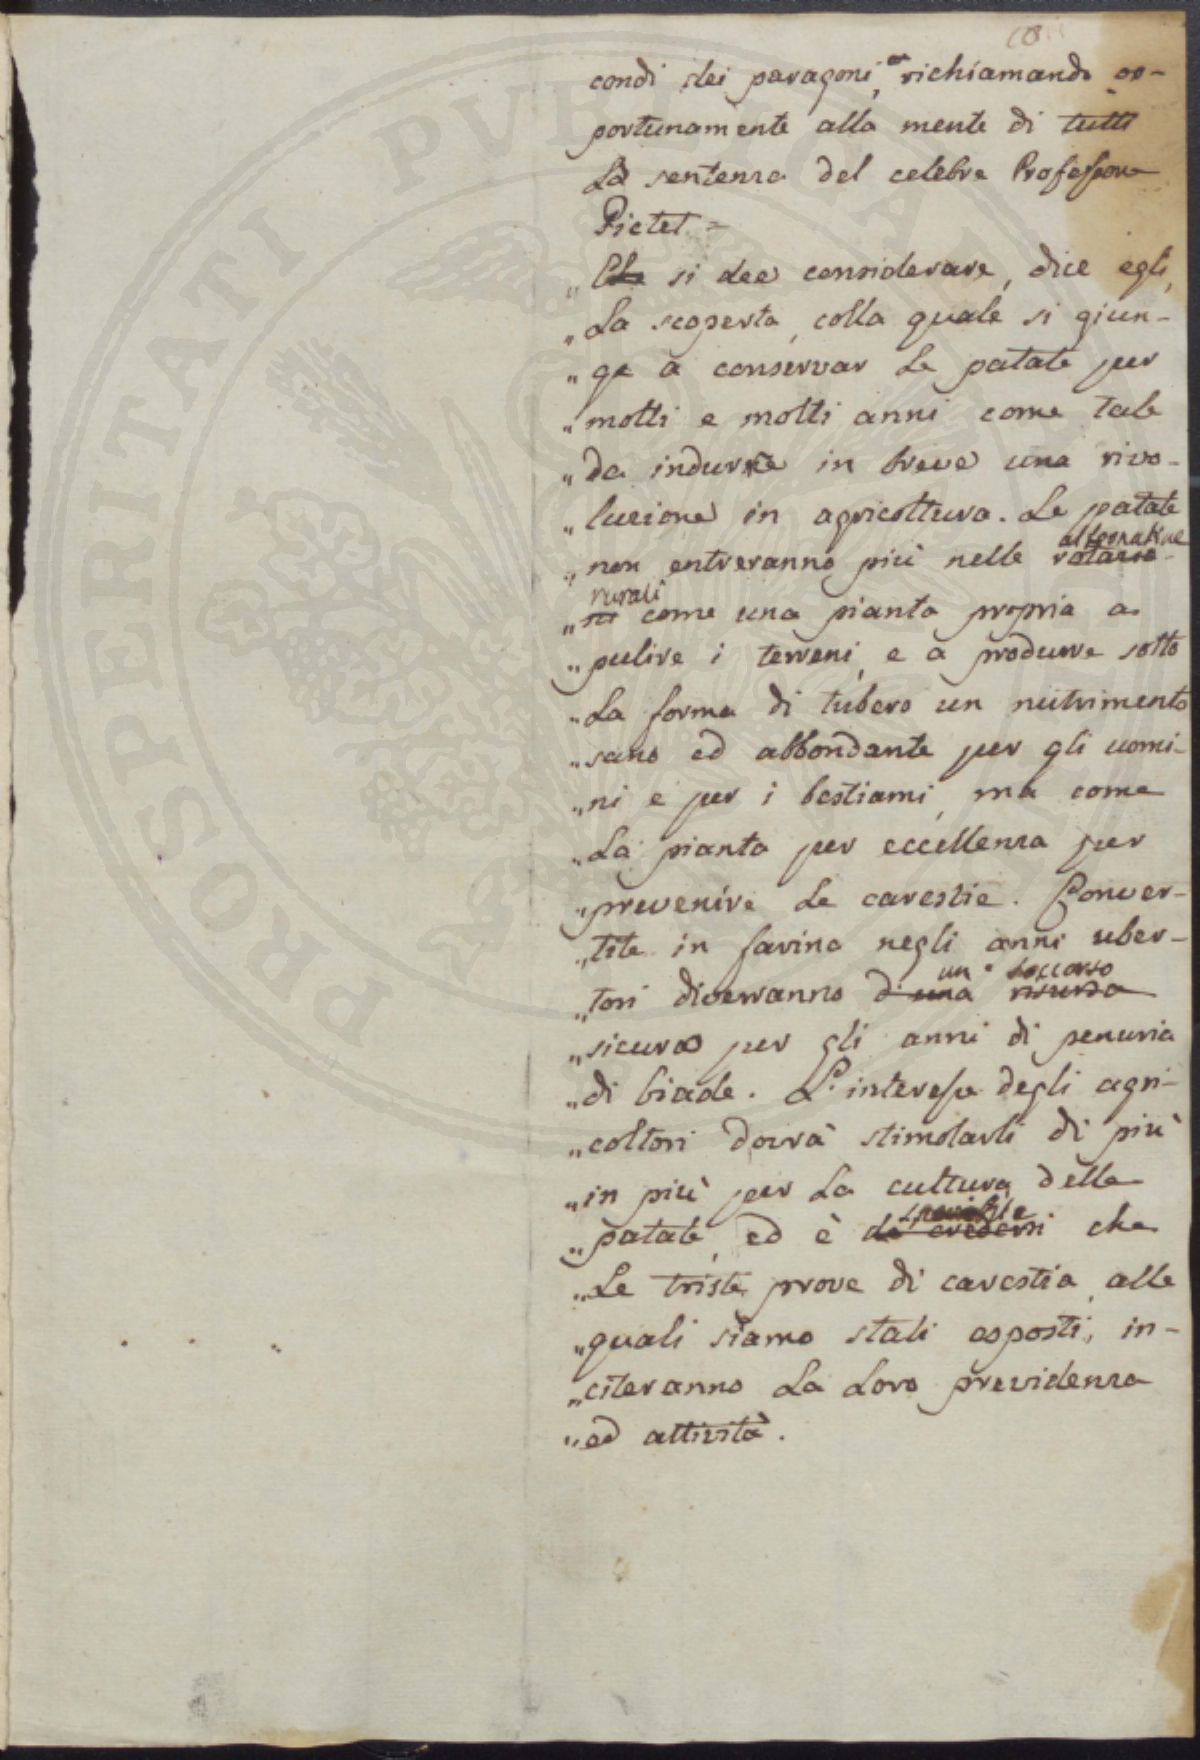 condi dei paragoni, e richiamando op-
portunamente alla mente di tutti
La sentenza del celebre Professore
Pictet =
„ Che si dee considerare, dice egli,
„ La scoperta, colla quale si giun-
„ ge a conservar Le patate per
„ molti e molti anni come tale
„ da indurre in breve una rivo-
„ luzione in agricoltura. Le patate
alternative
„ non entreranno più nelle rotazio-
rurali
„ ni come una pianta propria a
„ pulire i terreni, e a produrre sotto
„ La forma di tubero un nutrimento
„ sano ed abbondante per gli uomi-
„ ni e per i bestiami, ma come
„ La pianta per eccellenza per
„ prevenire Le carestie. Conver-
„ tite in farina negli anni uber-
un soccorso
„ tosi diverranno d'una risorsa
„ sicuro per gli anni di penuria
„ di biade. L'interesse degli agri-
„ coltori dovrà stimolarli di più
„ in più per La cultura delle
sperabile
„ patate, ed è da credersi che
„ Le triste prove di carestia, alle
„ quali siamo stati esposti, in-
„ citeranno La Loro previdenza
„ ed attività.
PROSPERITATI PVBLICAE